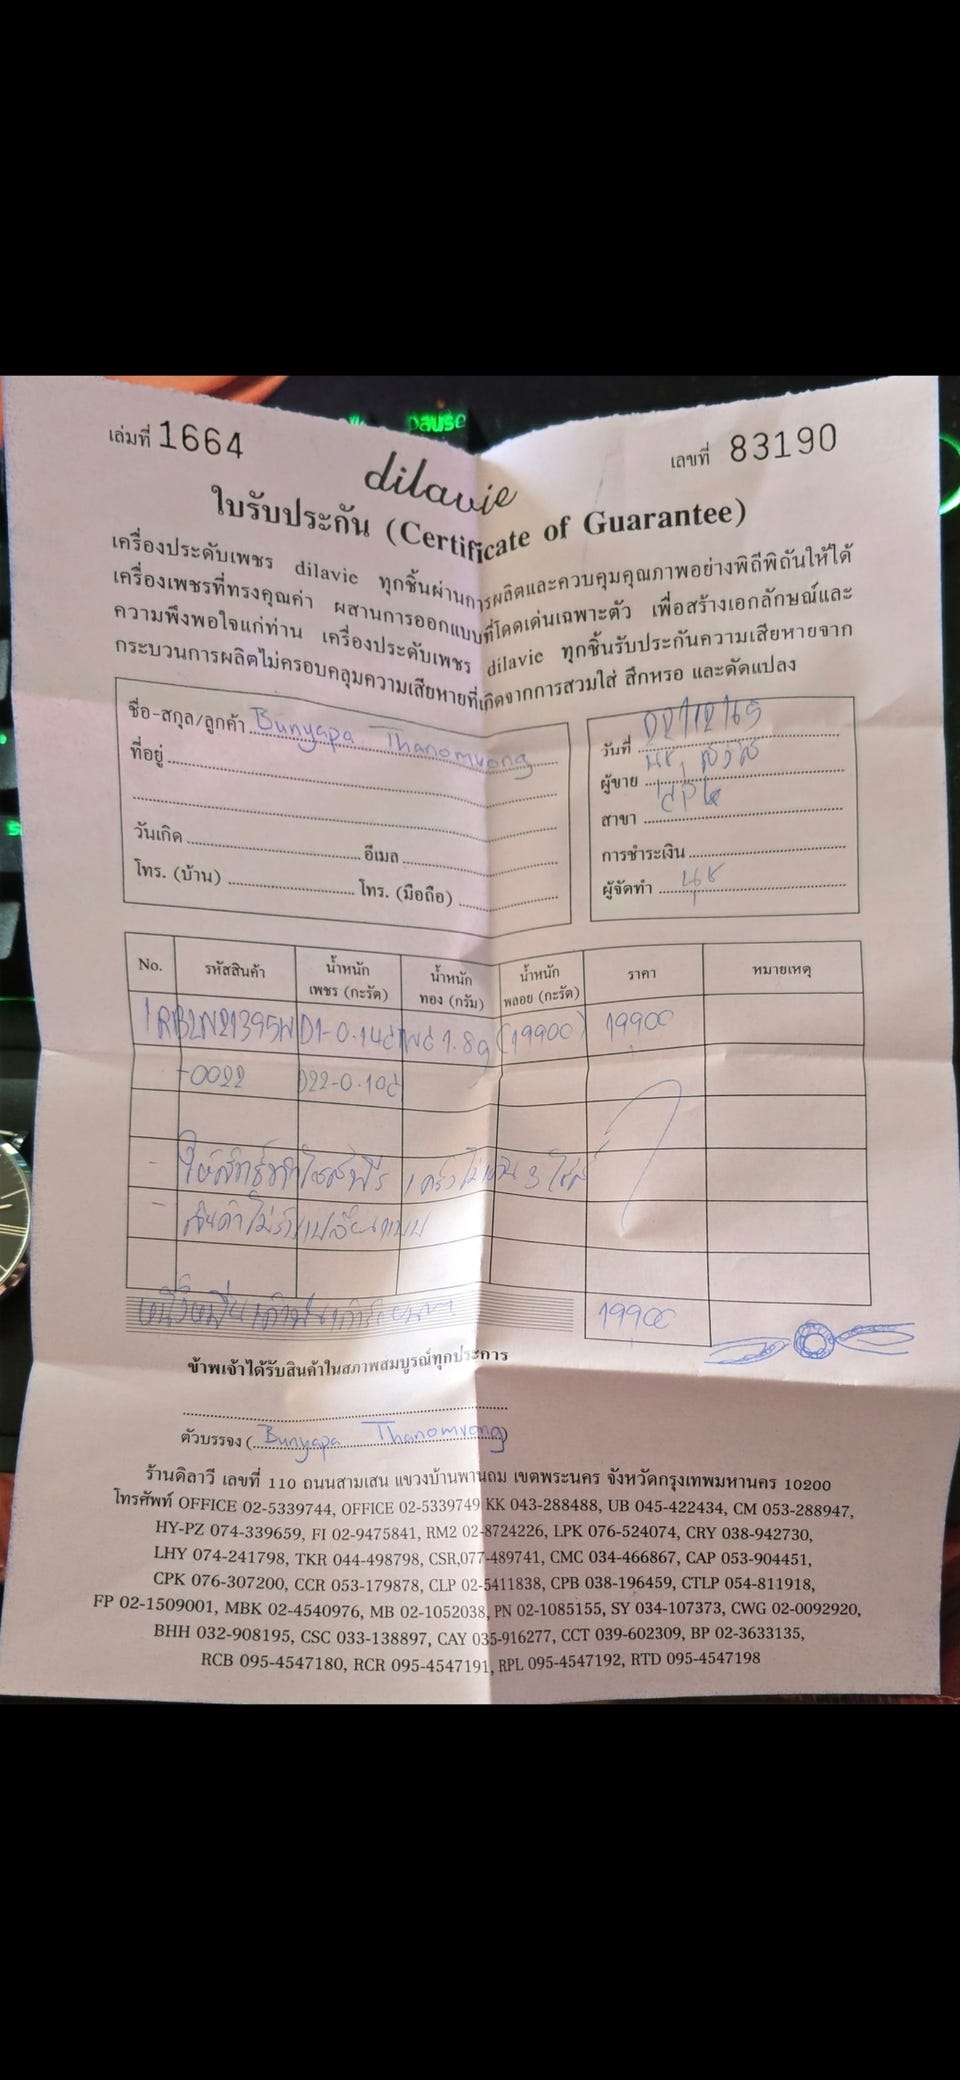 pause
เล่มที่ 1664
เลขที่ 83190
dilavie
ใบรับประกัน (Certificate of Guarantee)
เครื่องประดับเพชร dilavie ทุกชิ้นผ่านการผลิตและควบคุมคุณภาพอย่างพิถีพิถันให้ได้
เครื่องเพชรที่ทรงคุณค่า ผสานการออกแบบที่โดดเด่นเฉพาะตัว เพื่อสร้างเอกลักษณ์และ
ความพึงพอใจแก่ท่าน เครื่องประดับเพชร dilavie ทุกชิ้นรับประกันความเสียหายจาก
กระบวนการผลิตไม่ครอบคลุมความเสียหายที่เกิดจากการสวมใส่ สึกหรอ และดัดแปลง
ชื่อ-สกุล/ลูกค้า Bunyapa Thanomvong
ที่อยู่
วันเกิด อีเมล
โทร. (บ้าน) โทร. (มือถือ)
วันที่ 02/12/65
ผู้ขาย
สาขา
การชำระเงิน
ผู้จัดทำ
No. รหัสสินค้า น้ำหนักเพชร (กะรัต) น้ำหนักทอง (กรัม) น้ำหนักพลอย (กะรัต) ราคา หมายเหตุ
1 RBLN21395W D1-0.14ct 1.8g (19900) 19900
-0022 D22-0.10ct
- ให้สิทธิ์ทำไซส์ฟรี 1 ครั้งไม่เกิน 3 ไซส์
- สินค้าไม่รับเปลี่ยนแบบ
หนึ่งหมื่นเก้าพันเก้าร้อยบาท 19900
ข้าพเจ้าได้รับสินค้าในสภาพสมบูรณ์ทุกประการ
ตัวบรรจง (Bunyapa Thanomvong)
ร้านดิลาวี เลขที่ 110 ถนนสามเสน แขวงบ้านพานถม เขตพระนคร จังหวัดกรุงเทพมหานคร 10200
โทรศัพท์ OFFICE 02-5339744, OFFICE 02-5339749 KK 043-288488, UB 045-422434, CM 053-288947,
HY-PZ 074-339659, FI 02-9475841, RM2 02-8724226, LPK 076-524074, CRY 038-942730,
LHY 074-241798, TKR 044-498798, CSR,077-489741, CMC 034-466867, CAP 053-904451,
CPK 076-307200, CCR 053-179878, CLP 02-5411838, CPB 038-196459, CTLP 054-811918,
FP 02-1509001, MBK 02-4540976, MB 02-1052038, PN 02-1085155, SY 034-107373, CWG 02-0092920,
BHH 032-908195, CSC 033-138897, CAY 035-916277, CCT 039-602309, BP 02-3633135,
RCB 095-4547180, RCR 095-4547191, RPL 095-4547192, RTD 095-4547198